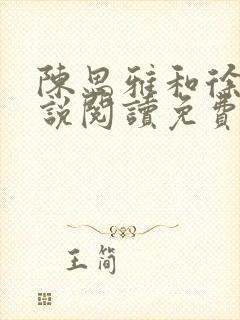 陳思雅和徐
說閱讀免費
王简